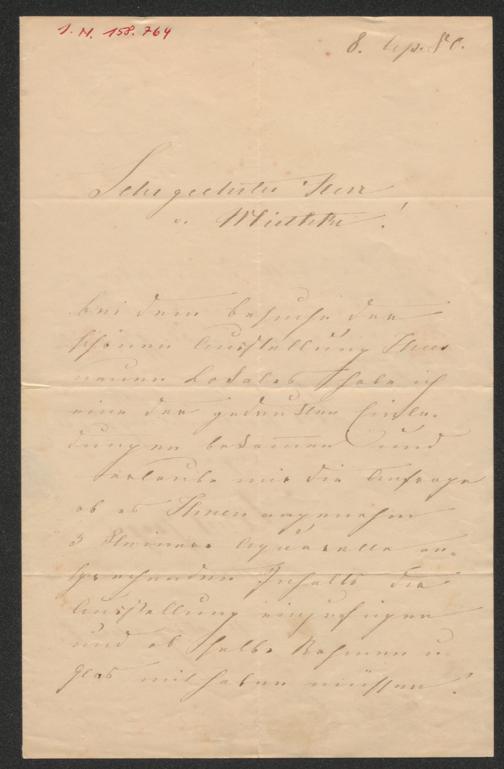 J. N. 158.764
8. Ap. 80.
Sehr geehrter Herr
v. Miethke!
bei dem Besuche der
schönen Ausstellung Ihres
neuen Lokales habe ich
eine der gedruckten Einla-
dungen bekommen und
erlaube mir die Anfrage
ob es Ihnen angenehm
3 kleinere Aquarelle an-
sprechenden Inhalts die
Ausstellung
und ob selbe Rahmen u.
Glas mithaben müssen?